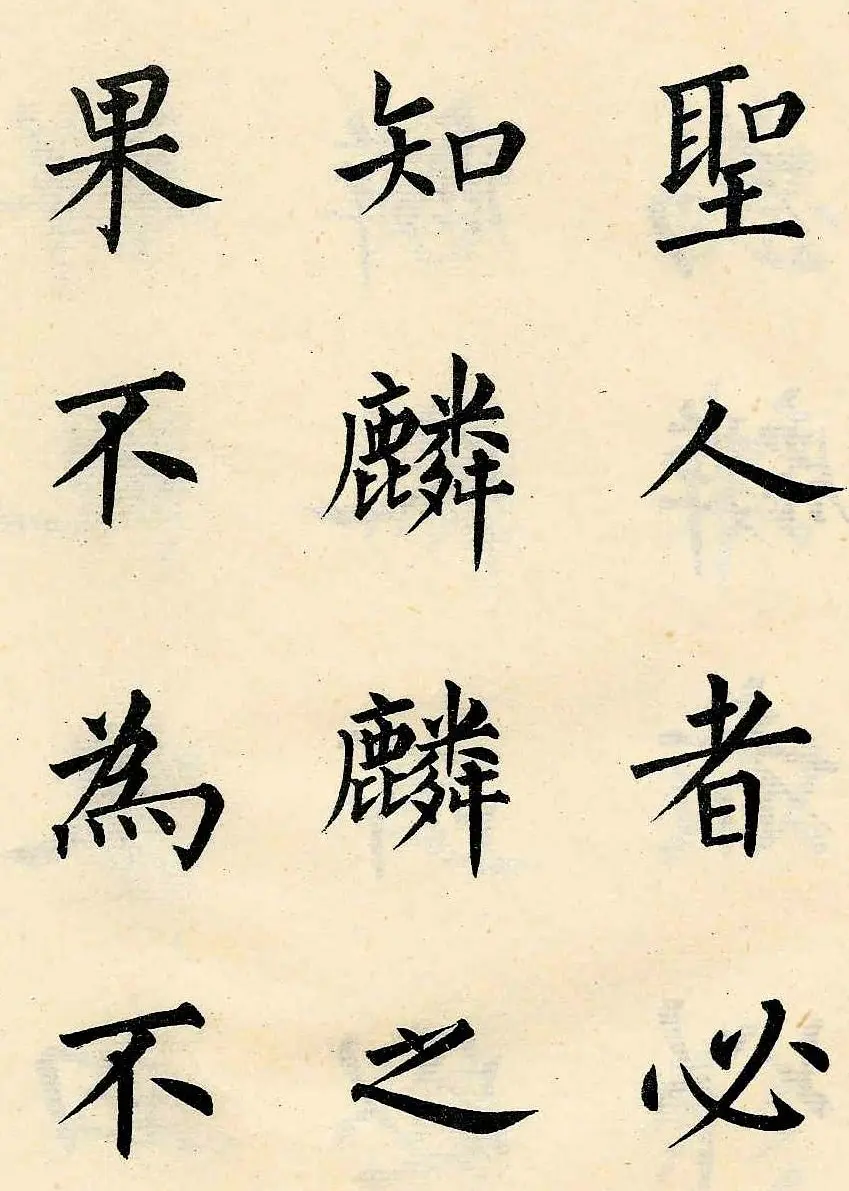 聖人者必
知麟麟之
果不為不